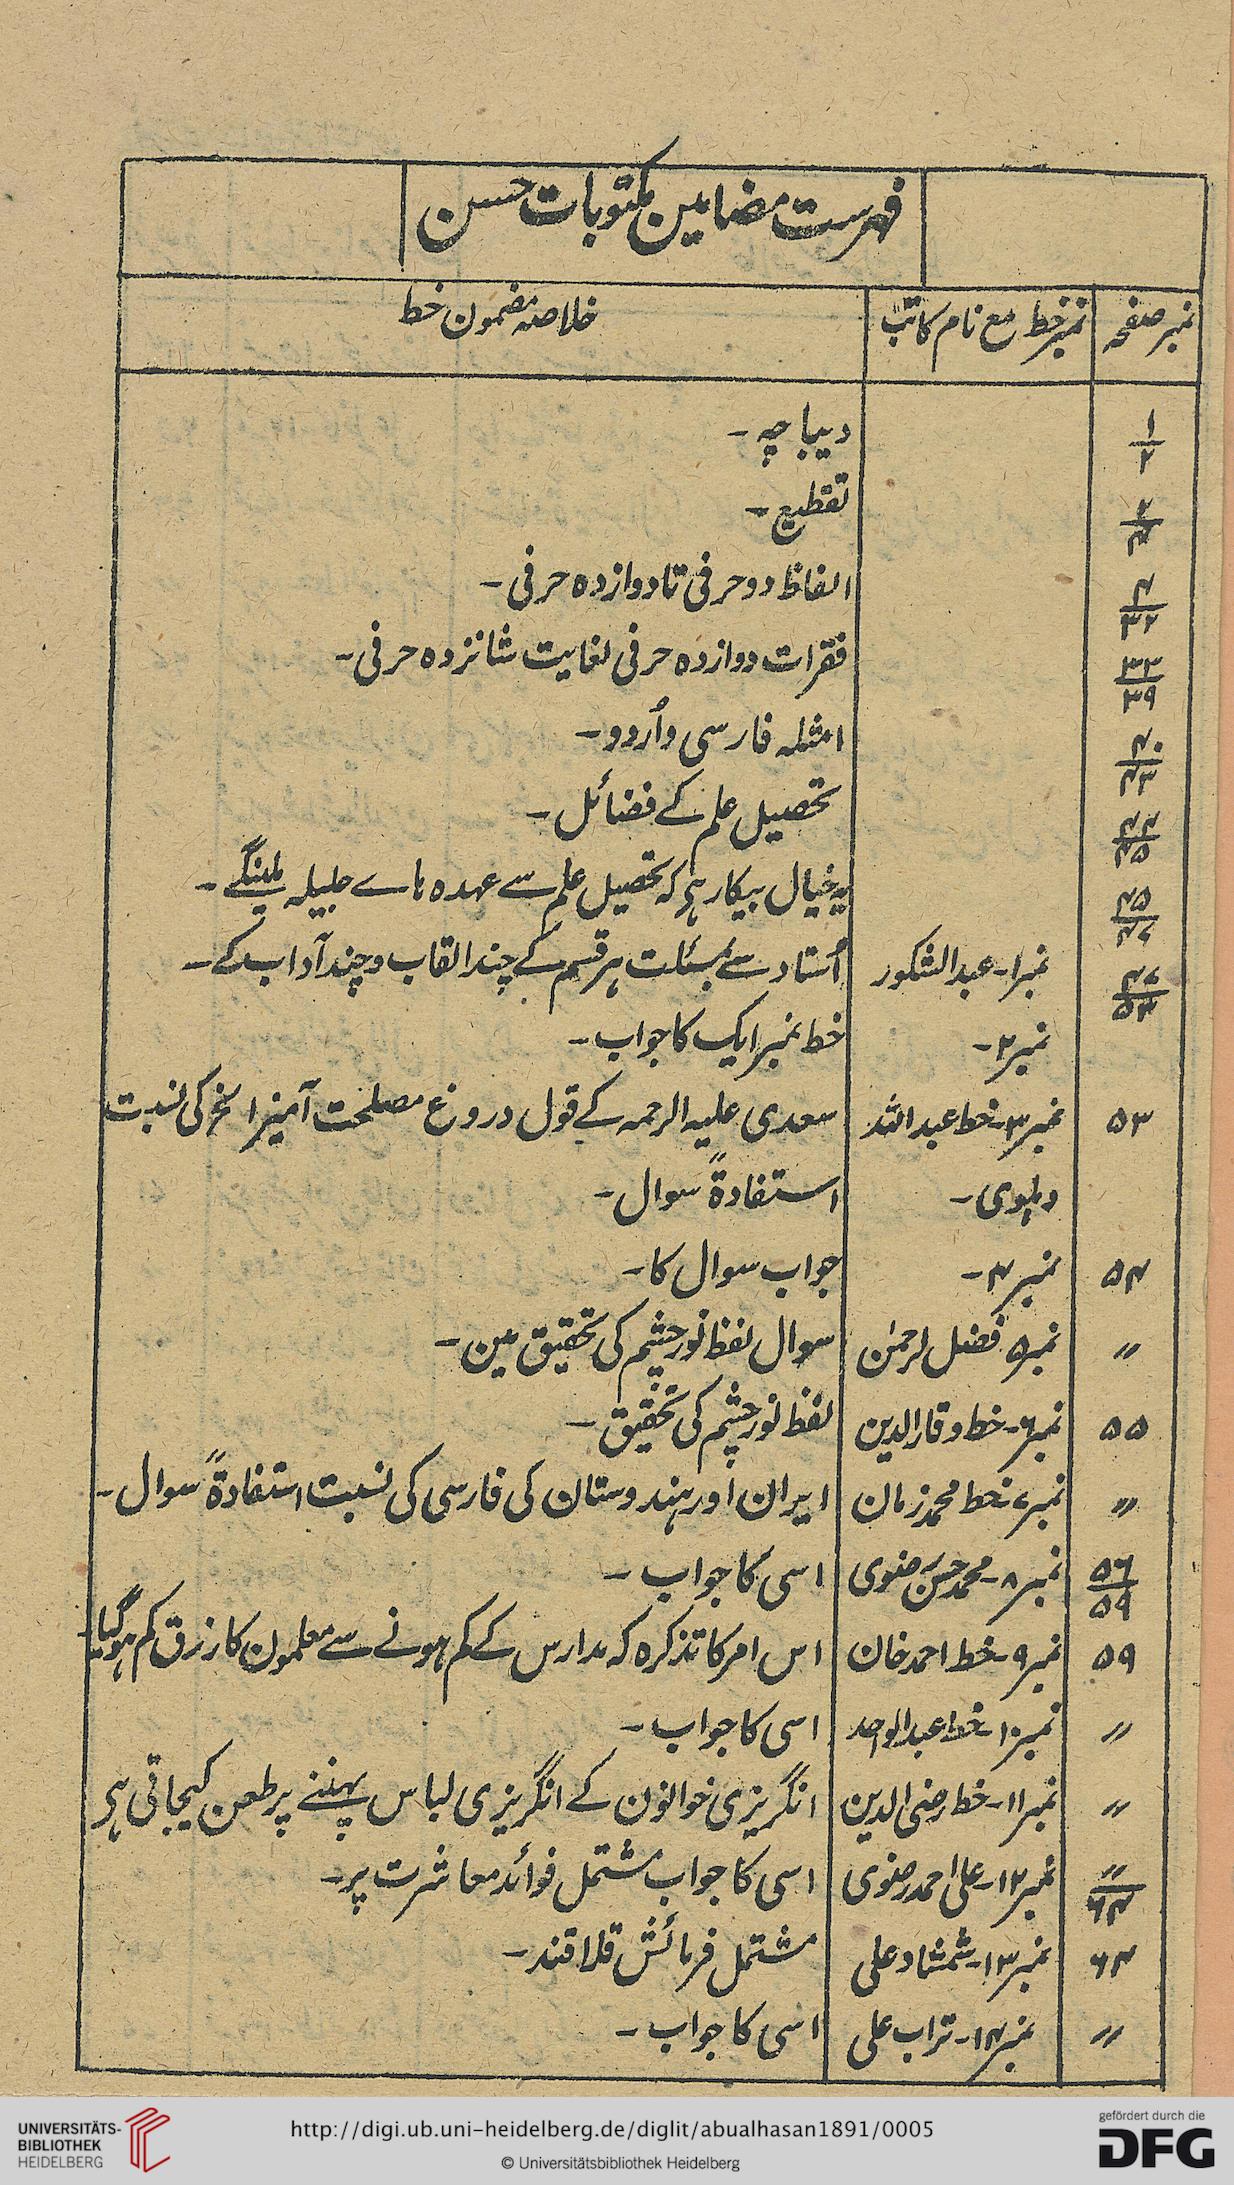 فہرست مضامین مکتوبات حسن
نمبر صفحہ نمبر خط مع نام کاتب خلاصہ مضمون خط
۱/۲ دیباچہ۔
۲/۴ تقطیع۔
۴/۳۲ الفاظ دو حرفی تا دوازدہ حرفی۔
۳۳/۳۹ فقرات دوازدہ حرفی لغایت شانزدہ حرفی۔
۴۰/۴۳ امثلہ فارسی و اُردو۔
۴۴/۴۵ تحصیل علم کے فضائل۔
۴۵/۴۶ یہ خیال بیکار ہی کہ تحصیل علم سے عہدہ ہاے جلیلہ ملینگے۔
۴۷/۵۳ نمبر۱۔ عبد الشکور اُستاد سے مسئلت ہر قسم کے چند القاب و چند آداب کے۔
نمبر۲۔ خط نمبر ایک کا جواب۔
۵۳ نمبر۳۔ خط عبد اللہ سعدی علیہ الرحمہ کے قول دروغ مصلحت آمیز الخ کی نسبت
دہلوی۔ استفادۃً سوال۔
۵۴ نمبر۴۔ جواب سوال کا۔
〃 نمبر۵ فضل الرحمٰن سوال لفظ نورچشیم کی تحقیق مین۔
۵۵ نمبر۶۔ خط وقار الدین لفظ نورچشم کی تحقیق۔
〃 نمبر۷۔ خط محمد زمان ایران اور ہندوستان کی فارسی کی نسبت استفادۃً سوال۔
۵۶/۵۹ نمبر۸۔ محمد حسن رضوی اسی کا جواب۔
۵۹ نمبر۹۔ خط احمد خان اس امر کا تذکرہ کہ مدارس کے کم ہونے سے معلمون کا رزق کم ہو گیا۔
〃 نمبر۱۰۔ خط عبد الواحد اسی کا جواب۔
〃 نمبر۱۱۔ خط رضی الدین انگریزی خوانون کے انگریزی لباس پہننے پر طعن کیجاتی ہی
〃/۶۴ نمبر۱۲۔ علی احمد رضوی اسی کا جواب مشتمل فوائد معاشرت پر۔
۶۴ نمبر۱۳۔ شمشاد علی مشتمل فرمائش قلاقند۔
〃 نمبر۱۴۔ تراب علی اسی کا جواب۔
UNIVERSITÄTS-
BIBLIOTHEK
HEIDELBERG
http://digi.ub.uni-heidelberg.de/diglit/abualhasan1891/0005
© Universitätsbibliothek Heidelberg
gefördert durch die
DFG